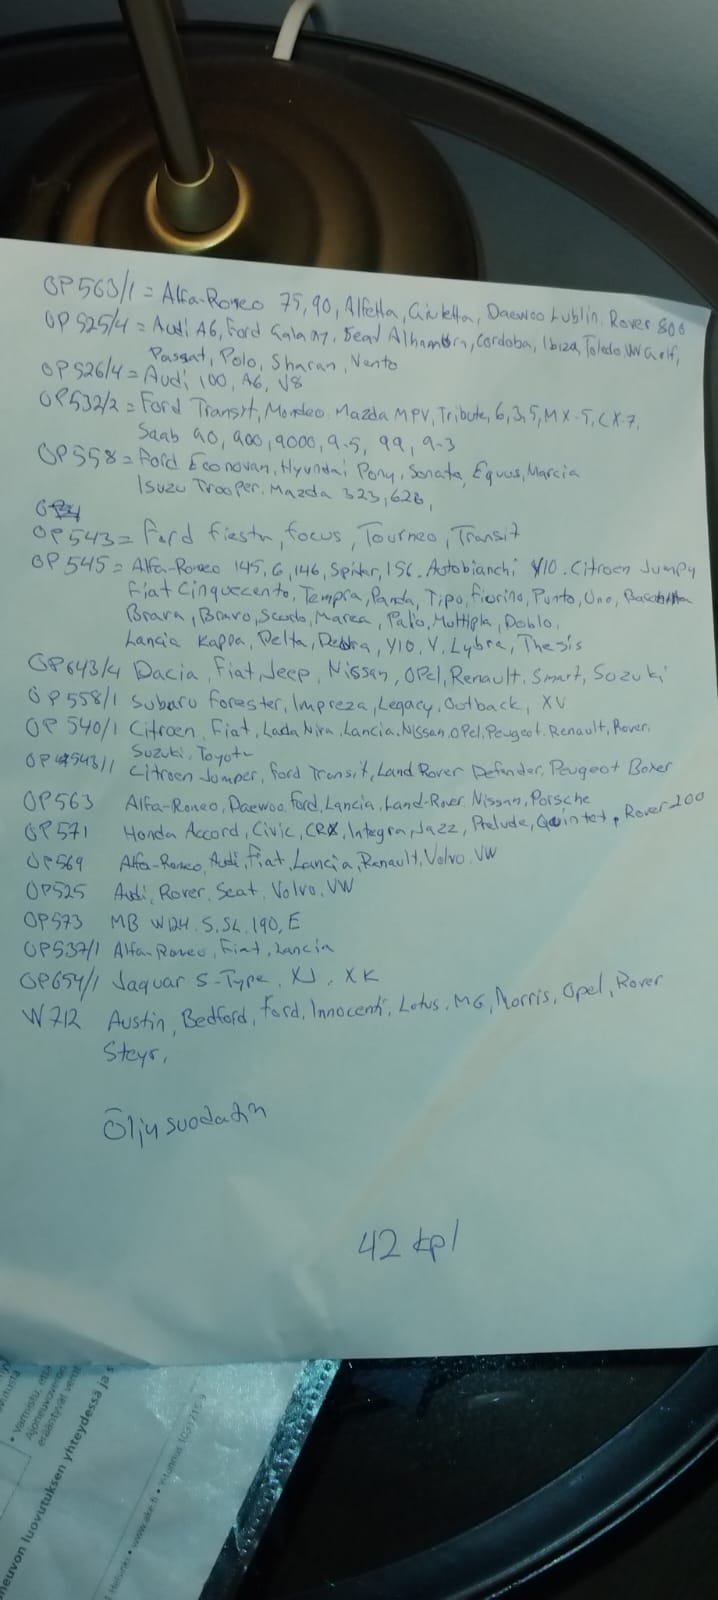 OP563/1 = Alfa-Romeo 75, 90, Alfetta, Giuletta, Daewoo Lublin, Rover 800
OP 525/4 = Audi A6, Ford Galaxy, Sead Alhambra, Cordoba, Ibiza, Toledo, VW Golf,
Passat, Polo, Sharan, Vento
OP526/4 = Audi, 100, A6, V8
OP532/2 = Ford Transit, Mondeo, Mazda MPV, Tribute, 6, 3, 5, MX-5, CX-7,
Saab 90, 900, 9000, 9-5, 99, 9-3
OP558 = Ford Econovan, Hyundai Pony, Sonata, Equus, Marcia
Isuzu Trooper. Mazda 323, 626,
OP543 = Ford fiesta, focus, Tourneo, Transit
OP 545 = Alfa-Romeo 145, 6, 146, Spider, 156. Autobianchi Y10. Citroen Jumpy
Fiat Cinquecento, Tempra, Panda, Tipo, Fiorino, Punto, Uno,
Brava, Bravo, Scudo, Marea, Palio, Multipla, Doblo,
Lancia Kappa, Delta, Dedra, Y10, Y, Lybra, Thesis
OP643/4 Dacia, Fiat, Jeep, Nissan, OPel, Renault, Smart, Suzuki
OP558/1 Subaru Forester, Impreza, Legacy, Outback, XV
OP 540/1 Citroen, Fiat, Lada Niva, Lancia, Nissan, OPel, Peugeot, Renault, Rover,
Suzuki, Toyota
OP 543/1 Citroen Jumper, Ford Transit, Land Rover Defender, Peugeot Boxer
OP563 Alfa-Romeo, Daewoo, Ford, Lancia, Land-Rover, Nissan, Porsche
OP571 Honda Accord, Civic, CRX, Integra, Jazz, Prelude, Quintet, Rover 200
OP569 Alfa-Romeo, Audi, Fiat, Lancia, Renault, Volvo, VW
OP525 Audi, Rover, Seat, Volvo, VW
OP573 MB W124, S, SL, 190, E
OP537/1 Alfa-Romeo, Fiat, Lancia
OP654/1 Jaquar S-Type, XJ, XK
W712 Austin, Bedford, Ford, Innocenti, Lotus, MG, Morris, Opel, Rover
Steyr,
Öljy suodatin
42 kpl
• Varmistu, että
neuvon luovutuksen yhteydessä ja
Helsinki • www.ake.fi •